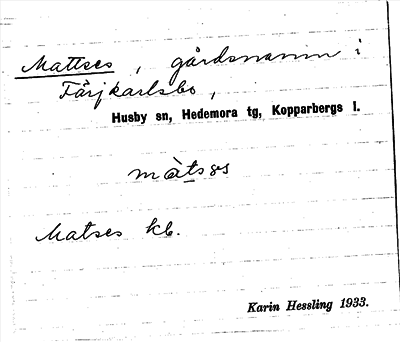 Mattses, gårdsnamn i
Färjkarlsbo,
Husby sn, Hedemora tg, Kopparbergs l.
Matses kb.
Karin Hessling 1933.